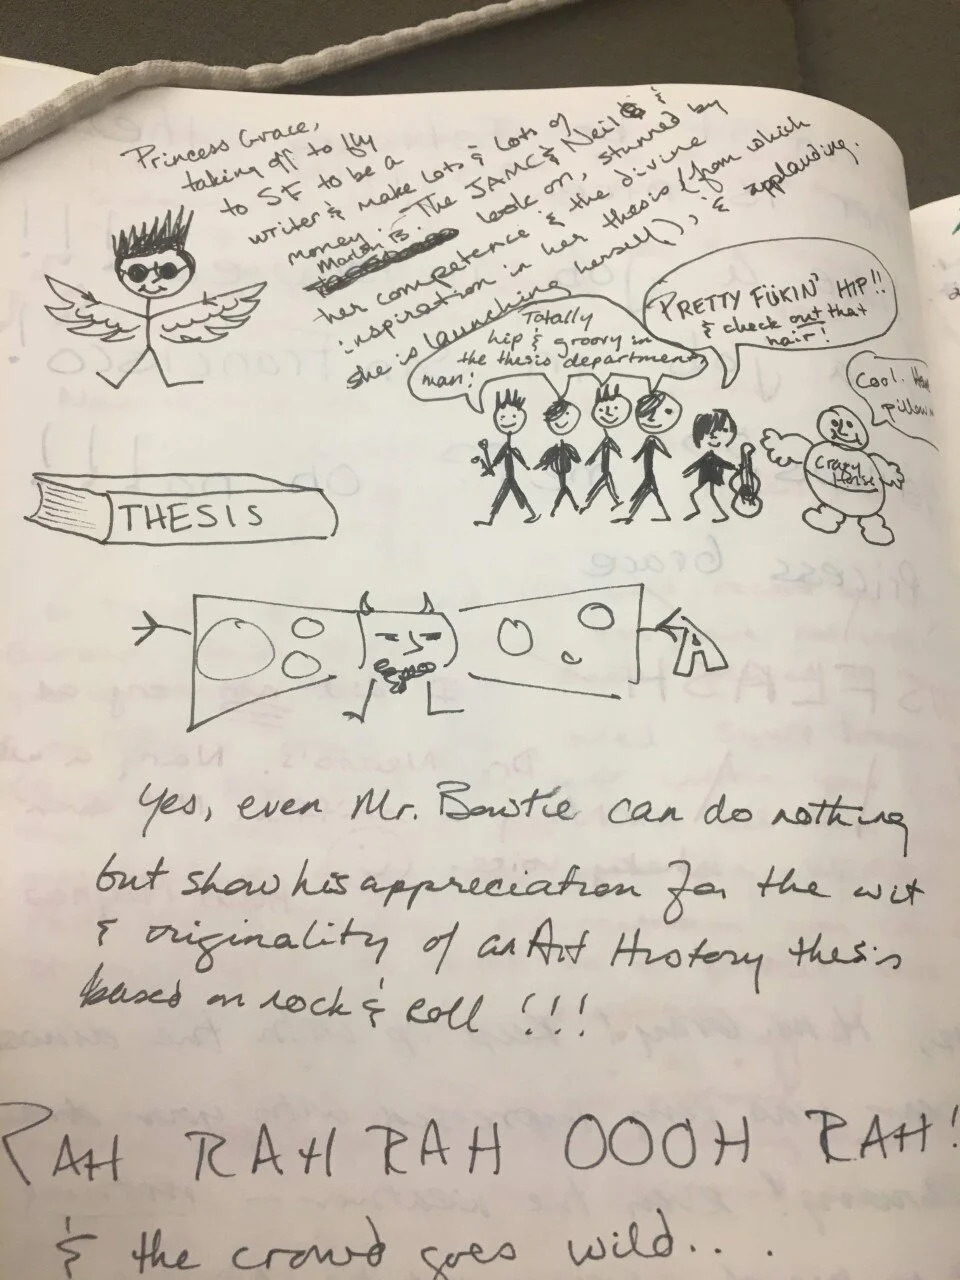 Princess Grace,
taking off to fly
to SF to be a
writer & make lots & lots of
money. The JAMC & Neil &
Martin B. look on, stunned by
her competence & the divine
inspiration in her thesis (from which
she is launching herself), & applauding.
Totally
hip & groovy in
the thesis department
man!
PRETTY FÜKIN' HIP!!
& check out that
hair!
Cool.
pillow
Crazy
Horse
THESIS
Yes, even Mr. Bowtie can do nothing
but show his appreciation for the wit
& originality of an Art History thesis
based on rock & roll !!!
RAH RAH RAH OOOH RAH!
& the crowd goes wild. . .